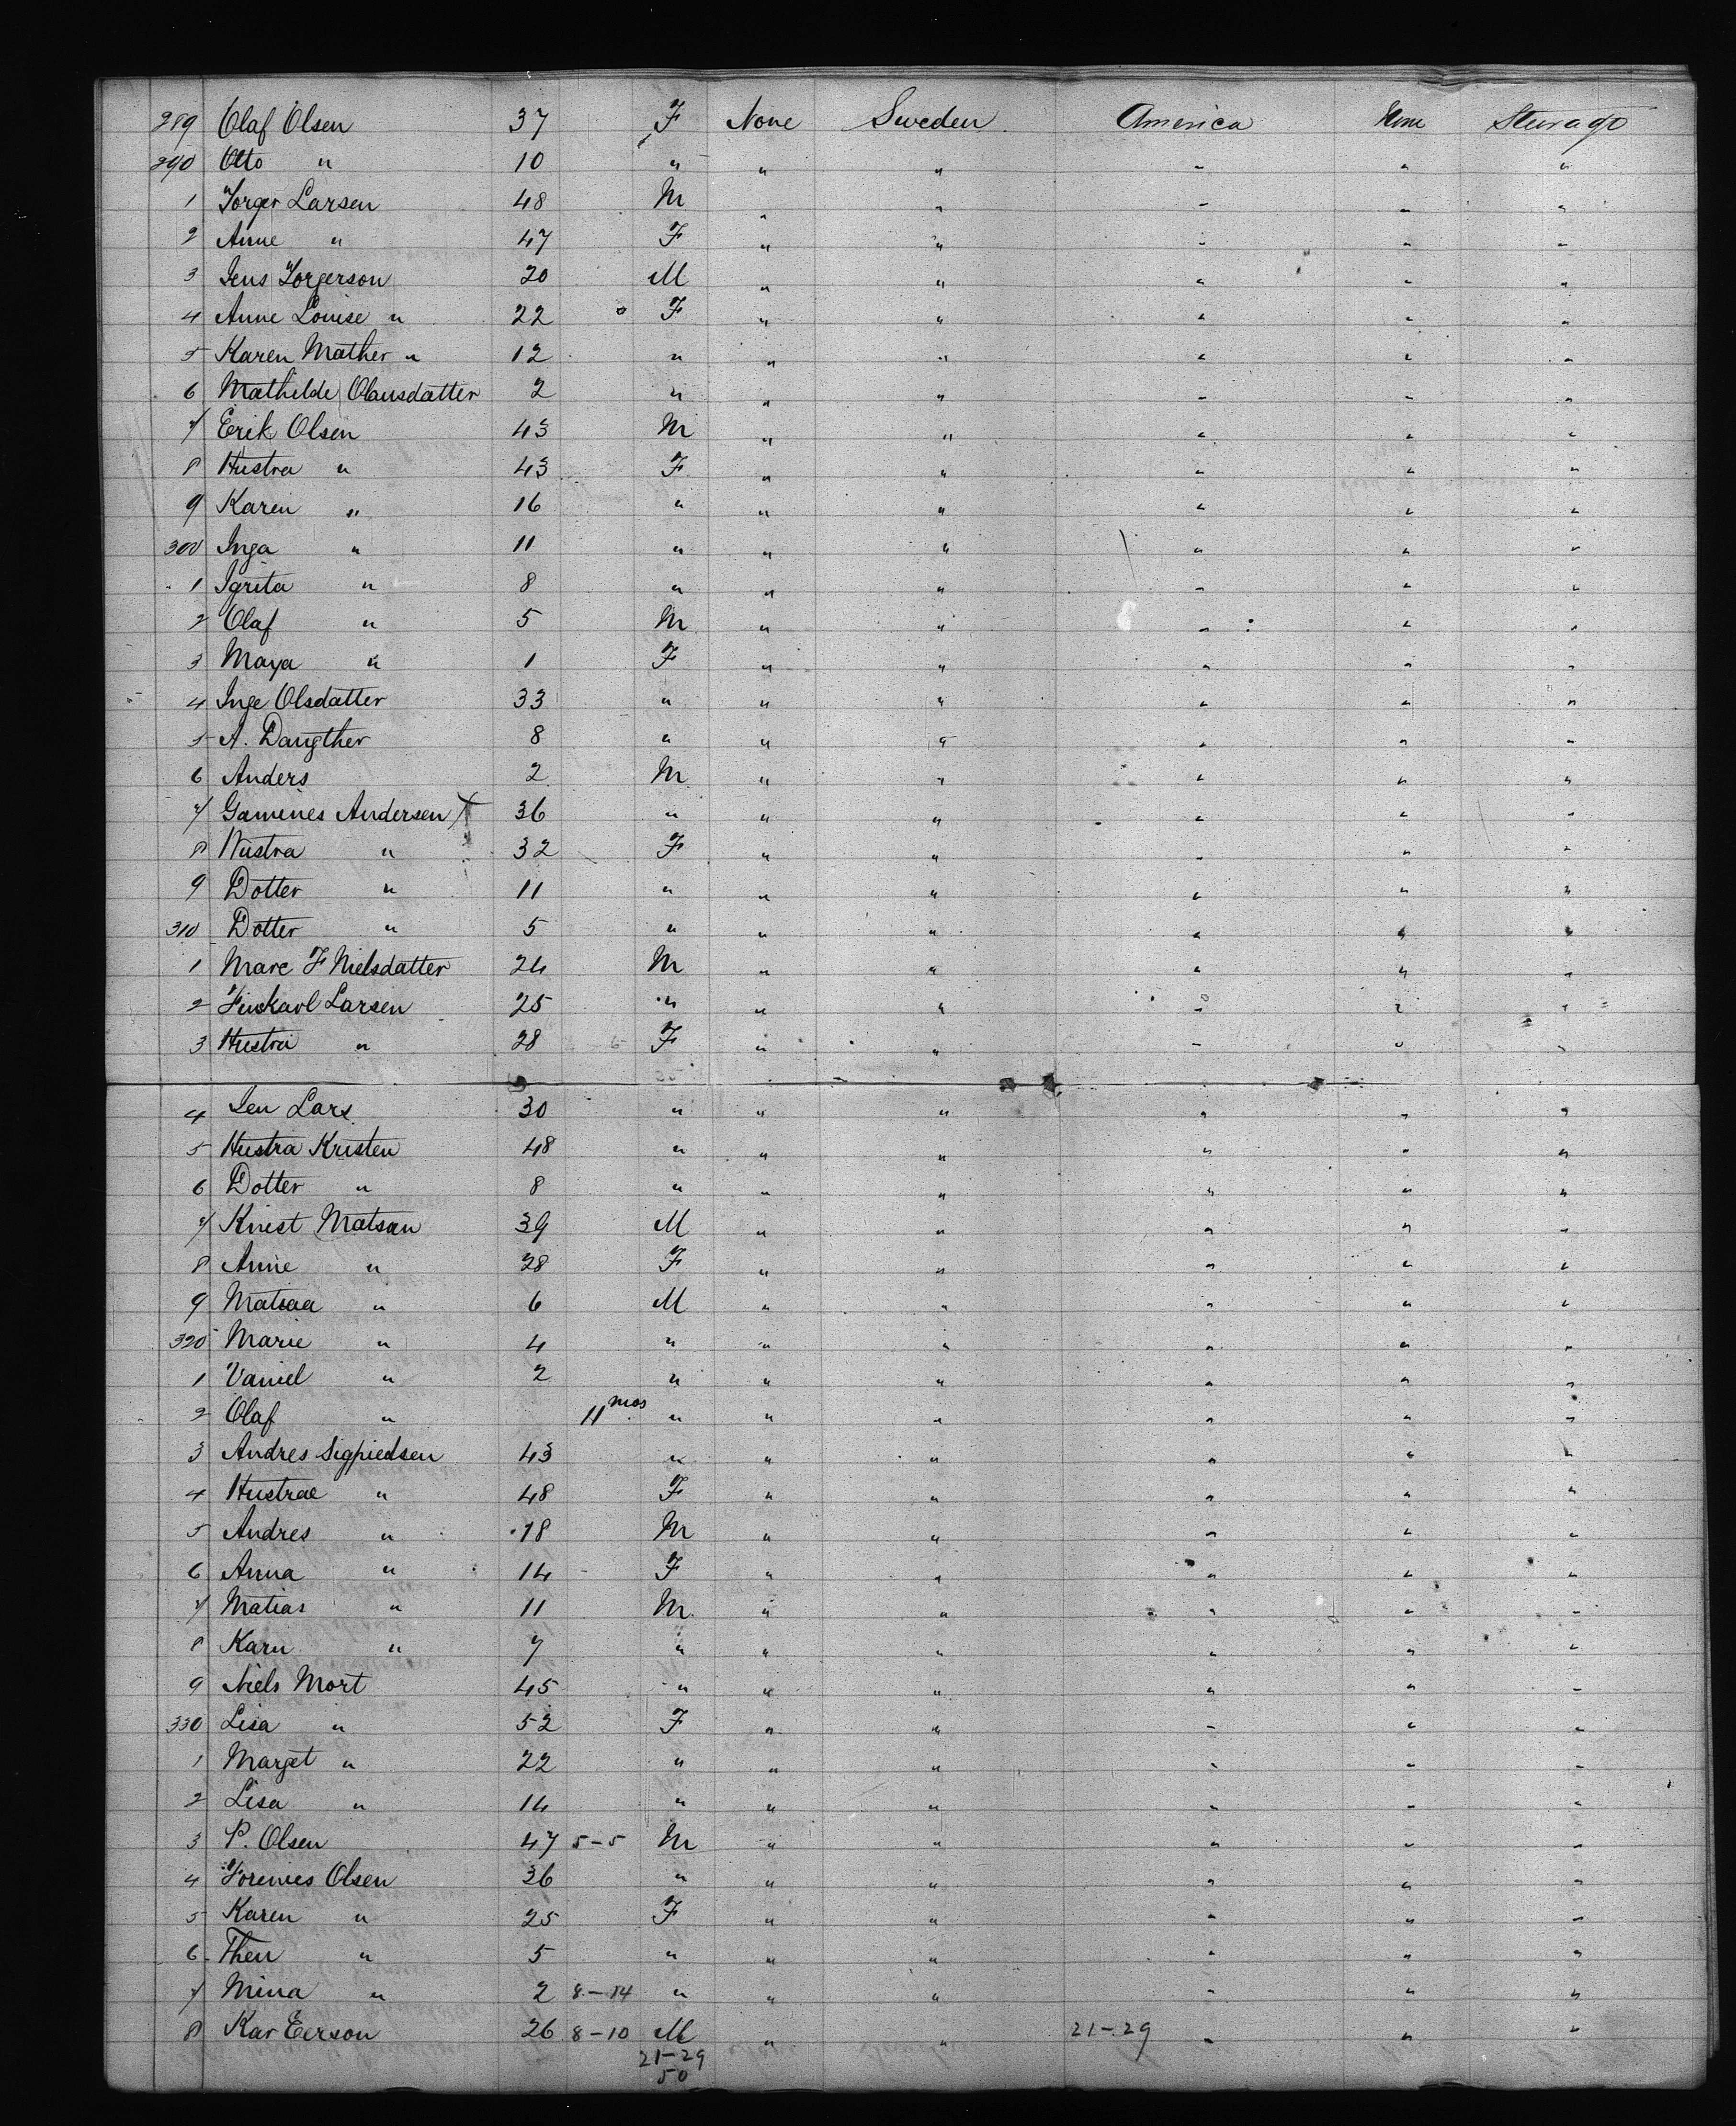 289 Olaf Olsen 37 F None Sweden America None Sterrage
290 Otto " 10 " " " " " "
1 Torger Larsen 48 M " " " " "
2 Anne " 47 F " " " " "
3 Jens Torgerson 20 M " " " " "
4 Anne Louise " 22 F " " " " "
5 Karen Mather " 12 " " " " " "
6 Mathilde Olausdatter 2 " " " " " "
7 Erik Olsen 43 M " " " " "
8 Hustra " 43 F " " " " "
9 Karen " 16 " " " " " "
300 Inga " 11 " " " " " "
1 Igrita " 8 " " " " " "
2 Olaf " 5 M " " " " "
3 Maya " 1 F " " " " "
4 Inge Olsdatter 33 " " " " " "
5 A. Daugther 8 " " " " " "
6 Anders 2 M " " " " "
7 Gamines Andersen X 36 " " " " " "
8 Hustra " 32 F " " " " "
9 Dotter " 11 " " " " " "
310 Dotter " 5 " " " " " "
1 Mare F Nielsdatter 24 M " " " " "
2 Larsen 25 " " " " " "
3 Hustra " 28 F " " " " "
4 Jen Lars 30 " " " " " "
5 Hustra Kristen 48 " " " " " "
6 Dotter " 8 " " " " " "
7 Knest Matsan 39 M " " " " "
8 Anne " 28 F " " " " "
9 Matsaa " 6 M " " " " "
320 Marie " 4 " " " " " "
1 Vaniel " 2 " " " " " "
2 Olaf " 11 mos " " " " " "
3 Andres Sigpiedsen 43 " " " " " "
4 Hustrae " 48 F " " " " "
5 Andres " 18 M " " " " "
6 Anna " 14 F " " " " "
7 Matias " 11 M " " " " "
8 Karn " 7 " " " " " "
9 Niels Mort 45 " " " " " "
330 Lisa " 52 F " " " " "
1 Marget " 22 " " " " " "
2 Lisa " 14 " " " " " "
3 P. Olsen 47 5-5 M " " " " "
4 Torenies Olsen 36 " " " " " "
5 Karen " 25 F " " " " "
6 Then " 5 " " " " " "
7 Mina " 2 8-14 " " " " " "
8 Kar Eerson 26 8-10 M " " 21-29 " " "
21-29
50